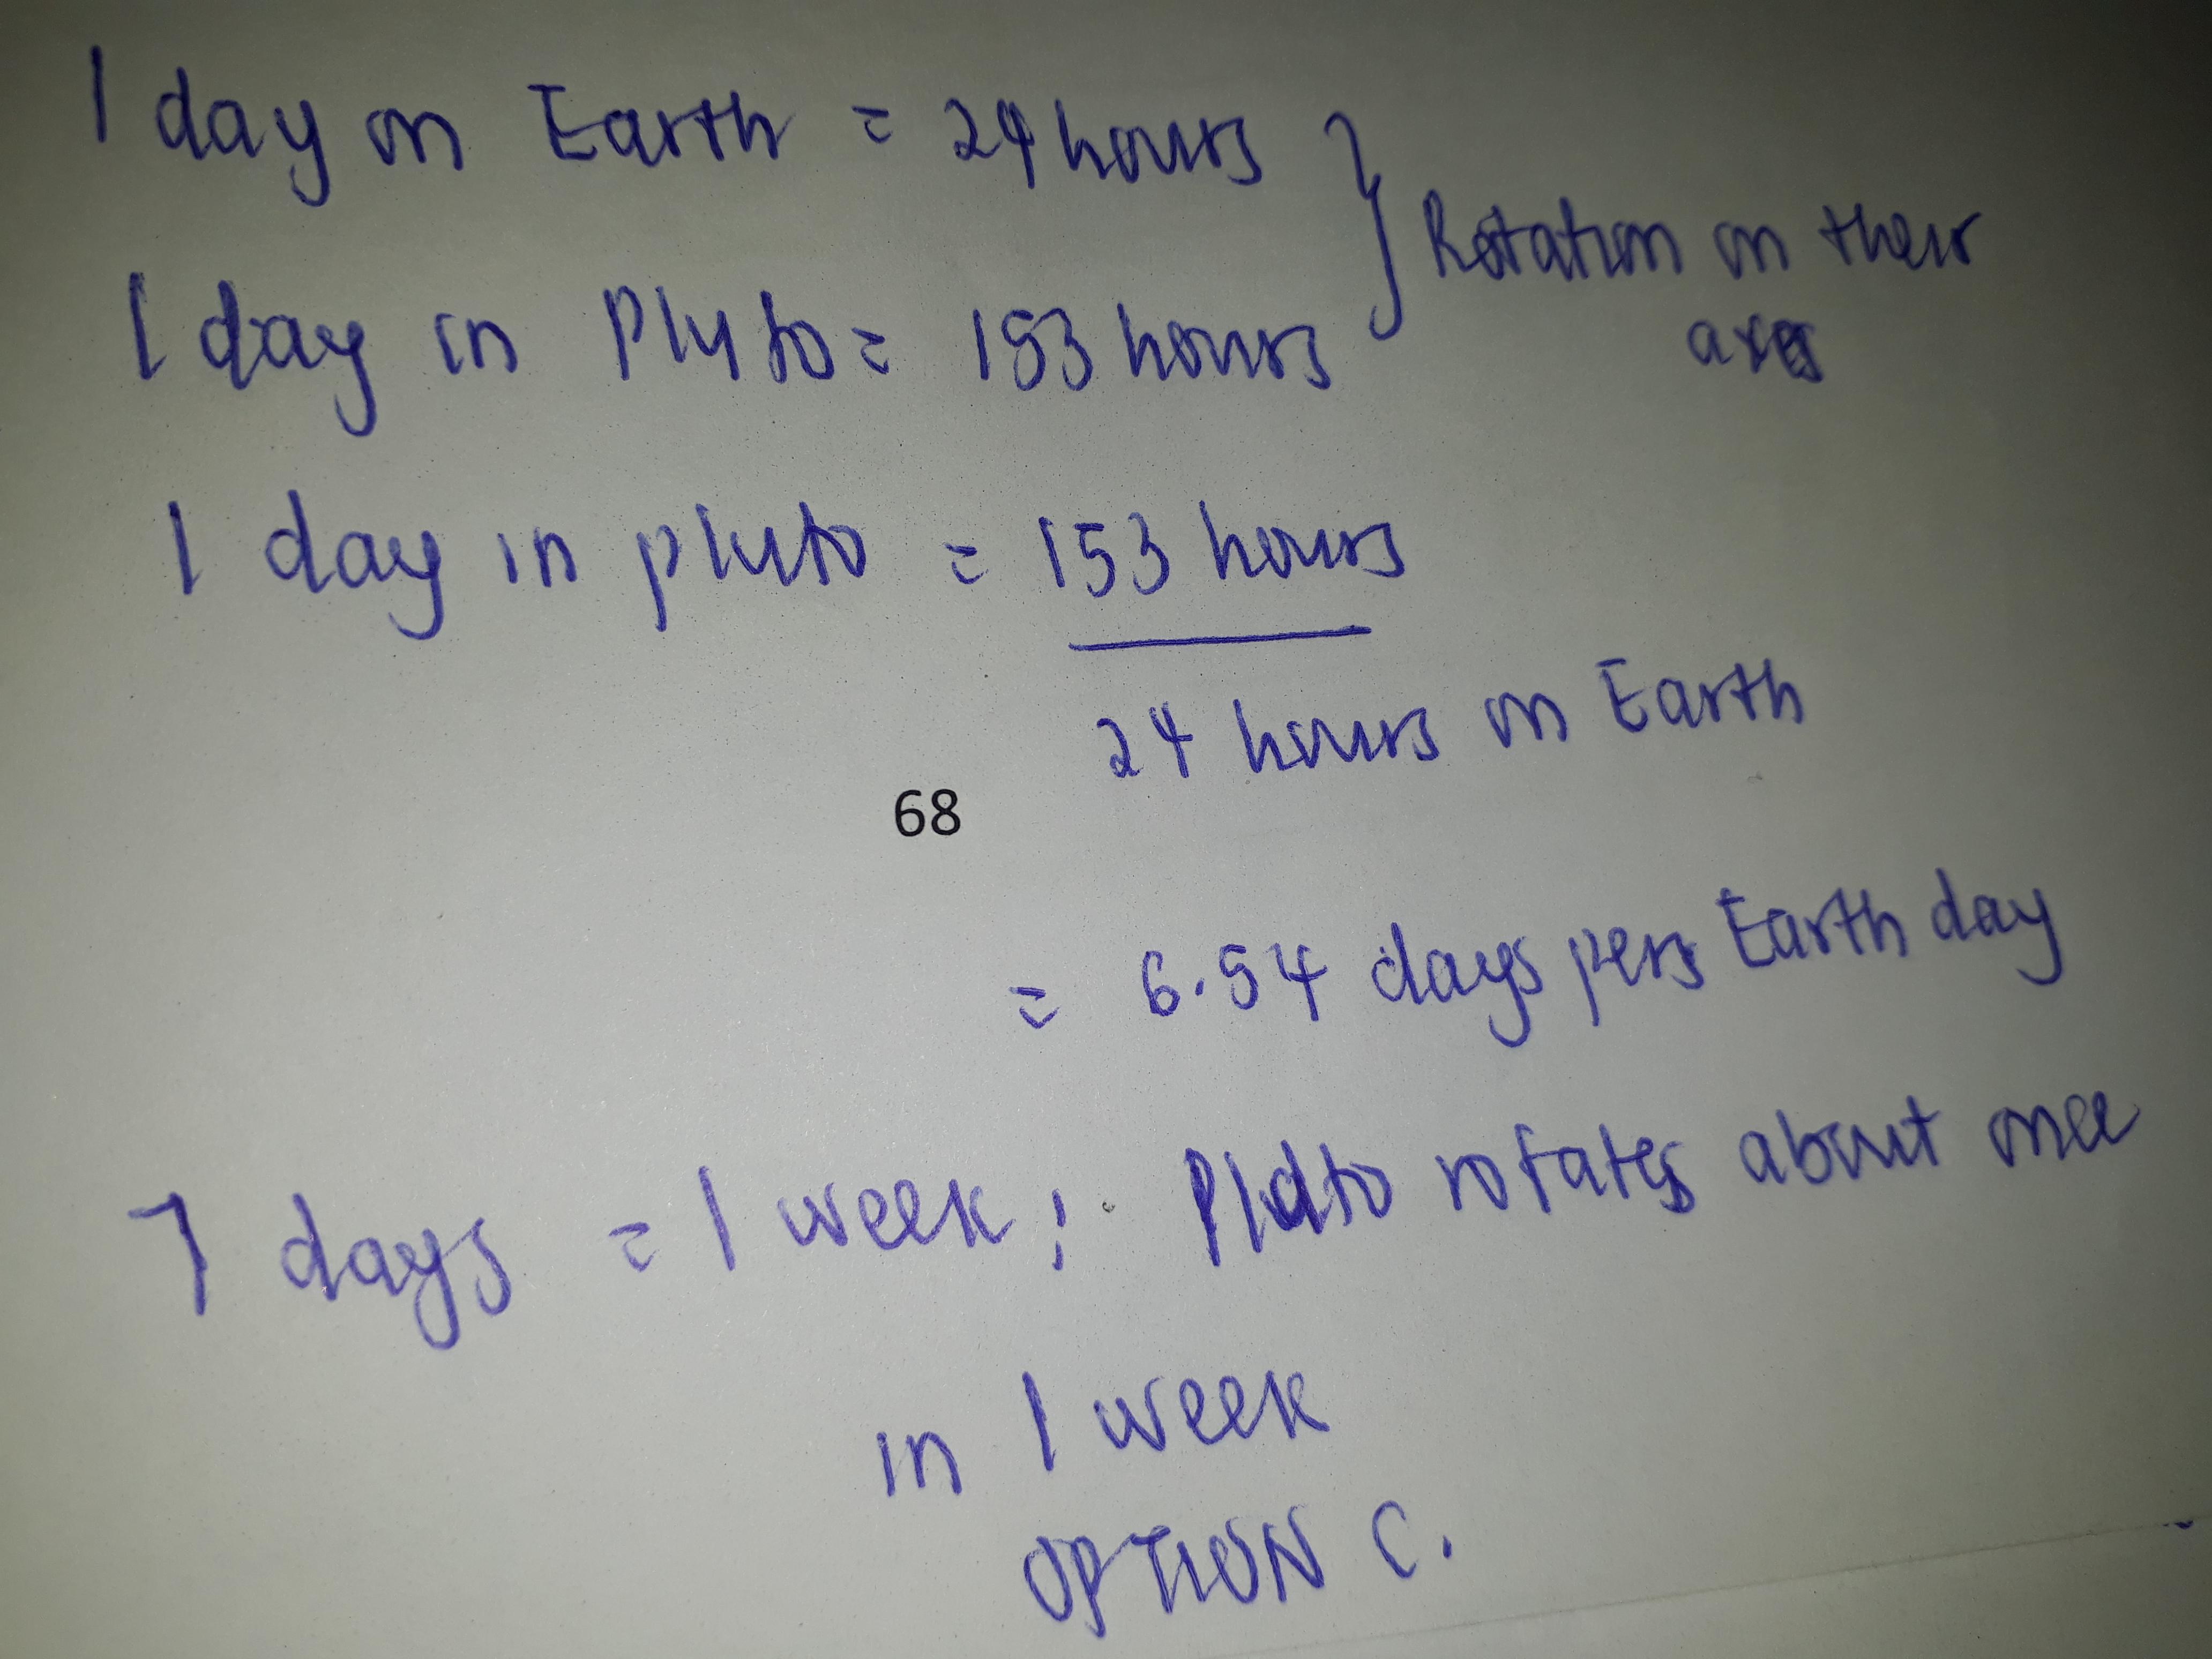 1 day on Earth = 24 hours
1 day in Pluto = 153 hours
} Rotation on their
axes
1 day in pluto = 153 hours
24 hours on Earth
68
= 6.54 days per Earth day
7 days = 1 week ; Pluto rotates about once
in 1 week
OPTION C.